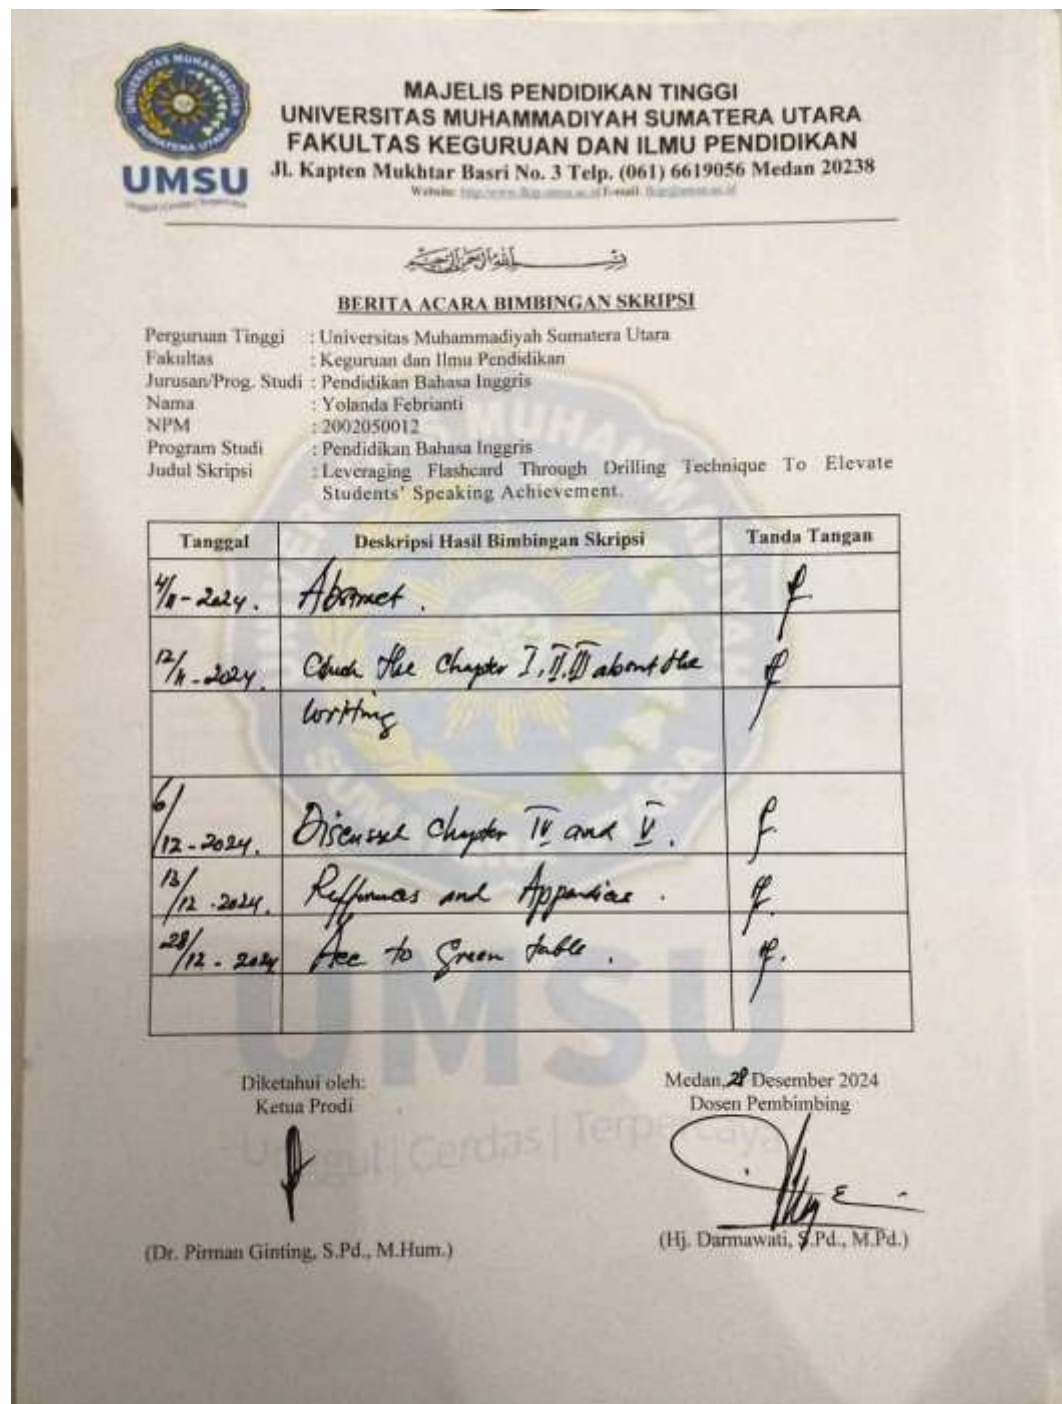 UNIVERSITAS MUHAMMADIYAH
SUMATERA UTARA
UMSU
Unggul | Cerdas | Terpercaya
MAJELIS PENDIDIKAN TINGGI
UNIVERSITAS MUHAMMADIYAH SUMATERA UTARA
FAKULTAS KEGURUAN DAN ILMU PENDIDIKAN
Jl. Kapten Mukhtar Basri No. 3 Telp. (061) 6619056 Medan 20238
Website: http://www.fkip.umsu.ac.id E-mail: fkip@umsu.ac.id
بسم الله الرحمن الرحيم
BERITA ACARA BIMBINGAN SKRIPSI
Perguruan Tinggi : Universitas Muhammadiyah Sumatera Utara
Fakultas : Keguruan dan Ilmu Pendidikan
Jurusan/Prog. Studi : Pendidikan Bahasa Inggris
Nama : Yolanda Febrianti
NPM : 2002050012
Program Studi : Pendidikan Bahasa Inggris
Judul Skripsi : Leveraging Flashcard Through Drilling Technique To Elevate
Students' Speaking Achievement.
Tanggal Deskripsi Hasil Bimbingan Skripsi Tanda Tangan
4/11-2024. Abstract.
12/11-2024. Check the Chapter I, II, III about the
writing
6/12-2024. Discussed Chapter IV and V.
13/12-2024. Refferences and Appendices.
28/12-2024 Acc to Green table.
Diketahui oleh:
Ketua Prodi
Medan, 28 Desember 2024
Dosen Pembimbing
(Dr. Pirman Ginting, S.Pd., M.Hum.)
(Hj. Darmawati, S.Pd., M.Pd.)
UMSU
Unggul | Cerdas | Terpercaya